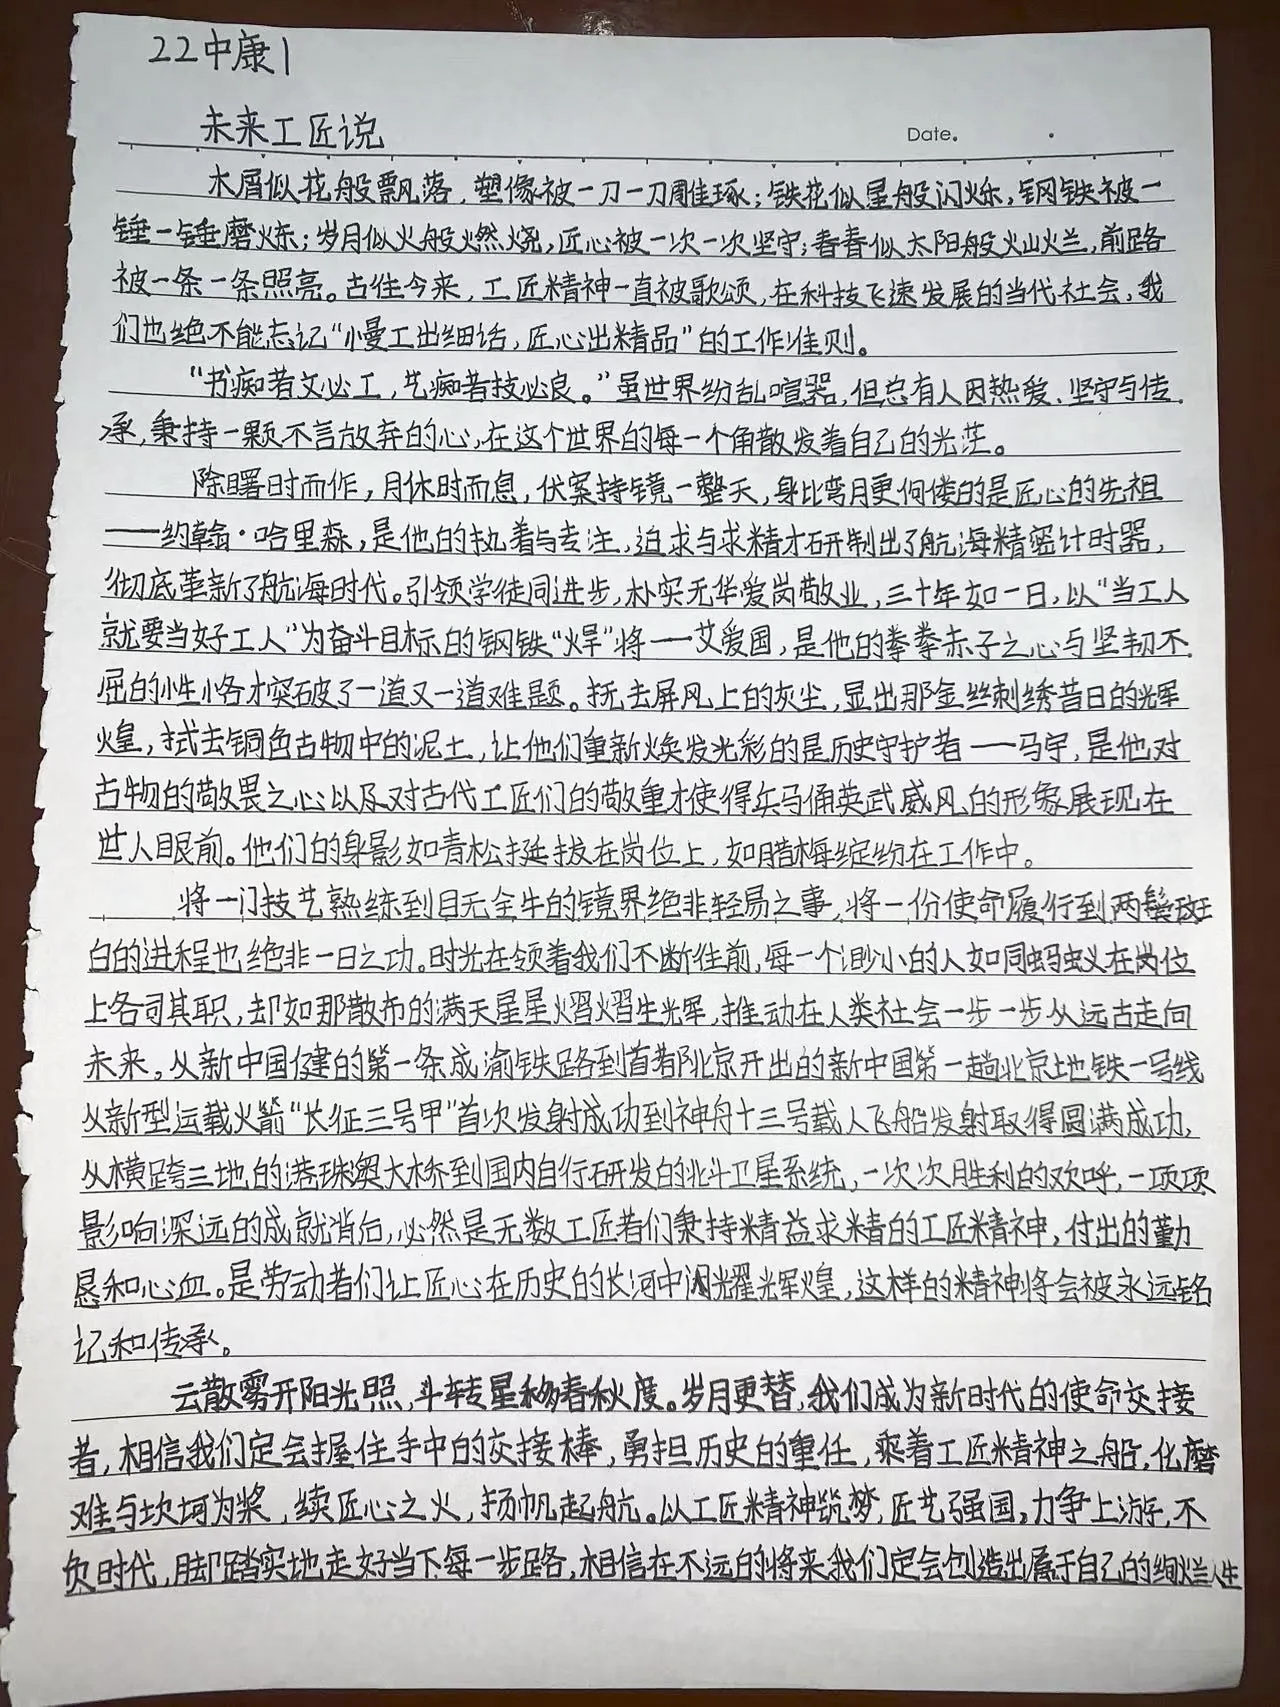 22中康1
未来工匠说
Date.
木屑似花般飘落，塑像被一刀一刀雕琢；铁花似星般闪烁，钢铁被一
锤一锤磨炼；岁月似火般燃烧，匠心被一次一次坚守；春春似太阳般灿烂，前路
被一条一条照亮。古往今来，工匠精神一直被歌颂，在科技飞速发展的当代社会，我
们也绝不能忘记“慢工出细活，匠心出精品”的工作准则。
“书痴者文必工，艺痴者技必良。”虽世界纷乱喧嚣，但总有人因热爱、坚守与传
承，秉持一颗不言放弃的心，在这个世界的每一个角散发着自己的光茫。
除曙时而作，月休时而息，伏案持镜一整天，身比弯月更佝偻的是匠心的先祖
——约翰·哈里森，是他的执着与专注，追求与求精才研制出了航海精密计时器，
彻底革新了航海时代。引领学徒同进步，朴实无华爱岗敬业，三十年如一日，以“当工人
就要当好工人”为奋斗目标的钢铁“焊”将——艾爱国，是他的拳拳赤子之心与坚韧不
屈的性格才突破了一道又一道难题。抚去屏风上的灰尘，显出那金丝刺绣昔日的光辉
煌，拭去铜色古物中的泥土，让他们重新焕发光彩的是历史守护者——马宇，是他对
古物的敬畏之心以及对古代工匠们的敬重才使得兵马俑英武威风的形象展现在
世人眼前。他们的身影如青松挺拔在岗位上，如腊梅绽纷在工作中。
将一门技艺熟练到目无全牛的镜界绝非轻易之事，将一份使命履行到两鬓斑
白的进程也绝非一日之功。时光在领着我们不断往前，每一个渺小的人如同蚂蚁在岗位
上各司其职，却如那散布的满天星星熠熠生光辉，推动在人类社会一步一步从远古走向
未来。从新中国健的第一条成渝铁路到首都北京开出的新中国第一趟北京地铁一号线
从新型运载火箭“长征三号甲”首次发射成功到神舟十三号载人飞船发射取得圆满成功，
从横跨三地的港珠澳大桥到国内自行研发的北斗卫星系统，一次次胜利的欢呼，一项项
影响深远的成就背后，必然是无数工匠者们秉持精益求精的工匠精神，付出的勤
恳和心血。是劳动者们让匠心在历史的长河中闪耀光辉煌，这样的精神将会被永远铭
记和传承。
云散雾开阳光照，斗转星移春秋度。岁月更替，我们成为新时代的使命交接
者，相信我们定会握住手中的交接棒，勇担历史的重任，乘着工匠精神之船，化磨
难与坎坷为桨，续匠心之火，扬帆起航。以工匠精神筑梦，匠艺强国，力争上游，不
负时代，脚踏实地走好当下每一步路，相信在不远的将来我们定会创造出属于自己的绚烂人生